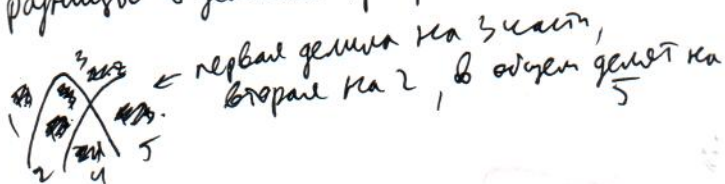 разницы
3 ← первая делила на 3 части,
вторая на 2, в общем делят на
5
1
5
2 4